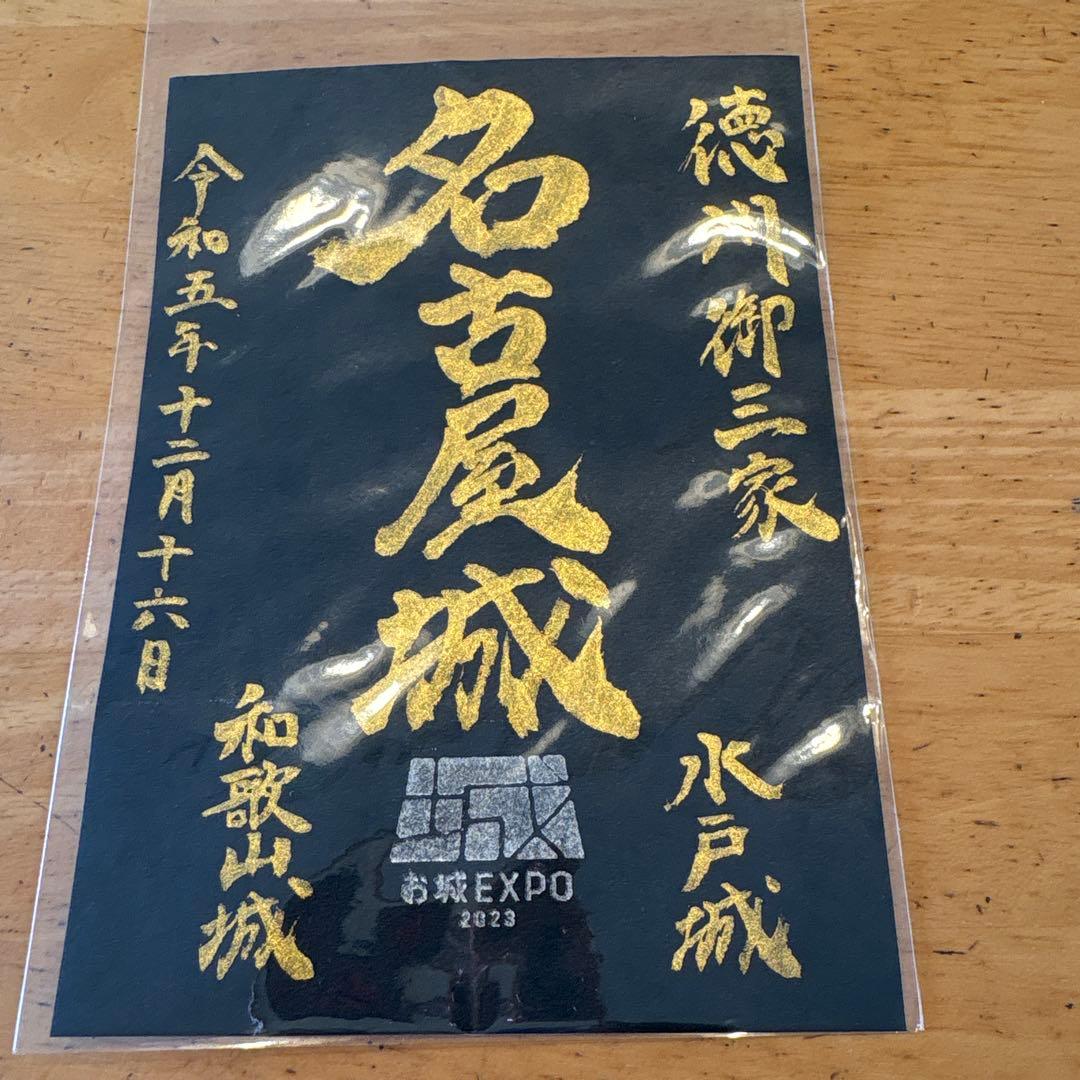 徳川御三家
名古屋城
令和五年十二月十六日
水戸城
和歌山城
城
お城EXPO
2023